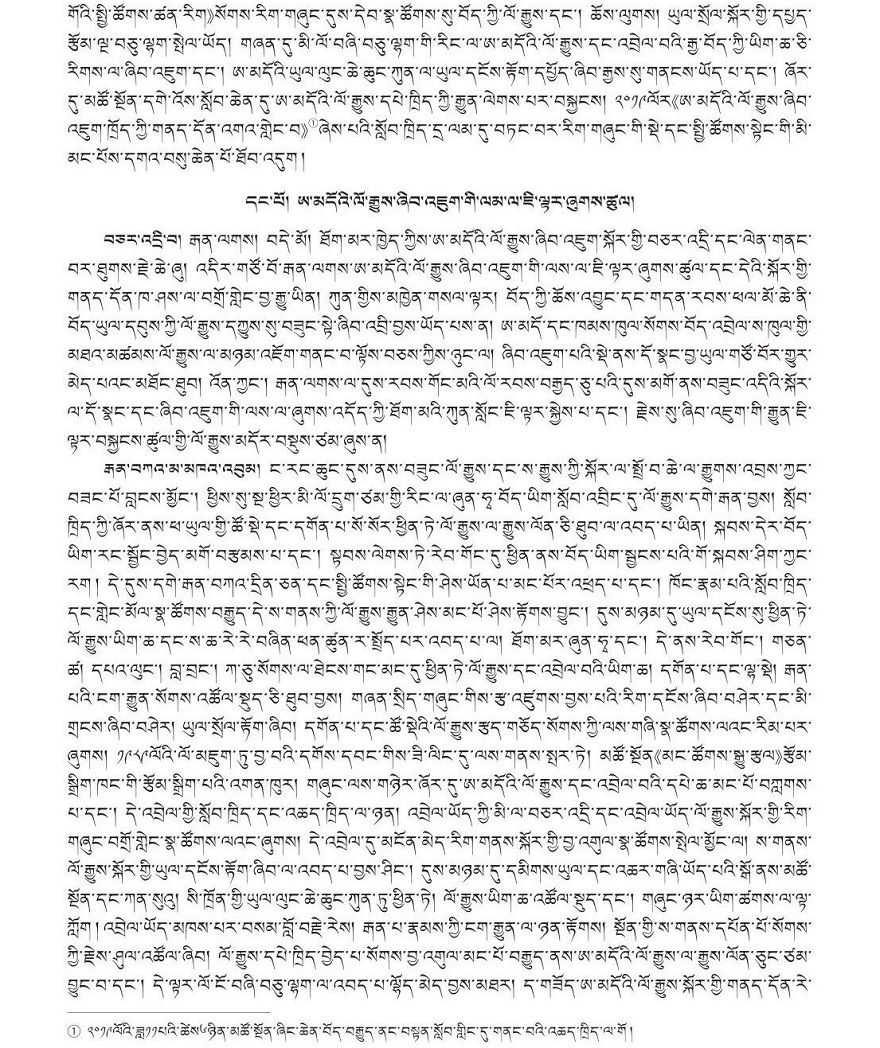 གོའི་སྤྱི་ཚོགས་ཚན་རིག》སོགས་རིག་གཞུང་དུས་དེབ་སྣ་ཚོགས་སུ་བོད་ཀྱི་ལོ་རྒྱུས་དང་། ཆོས་ལུགས། ཡུལ་སྲོལ་སྐོར་གྱི་དཔྱད་
རྩོམ་ལྔ་བཅུ་ལྷག་སྤེལ་ཡོད། གཞན་དུ་མི་ལོ་བཞི་བཅུ་ལྷག་གི་རིང་ལ་ཨ་མདོའི་ལོ་རྒྱུས་དང་འབྲེལ་བའི་རྒྱ་བོད་ཀྱི་ཡིག་ཆ་ཅི་
རིགས་ལ་ཞིབ་འཇུག་དང་། ཨ་མདོའི་ཡུལ་ལུང་ཆེ་ཆུང་ཀུན་ལ་ཡུལ་དངོས་རྟོག་དཔྱོད་ཞིབ་རྒྱས་སུ་གནངས་ཡོད་པ་དང་། ཞོར་
དུ་མཚོ་སྔོན་དགེ་འོས་སློབ་ཆེན་དུ་ཨ་མདོའི་ལོ་རྒྱུས་དཔེ་ཁྲིད་ཀྱི་རྒྱུན་ལེགས་པར་བསྐྱངས། ༢༠༡༩ལོར《ཨ་མདོའི་ལོ་རྒྱུས་ཞིབ་
འཇུག་ཁྲོད་ཀྱི་གནད་དོན་འགའ་གླེང་བ》①ཞེས་པའི་སློབ་ཁྲིད་དྲ་ལམ་དུ་བཏང་བར་རིག་གཞུང་གི་སྡེ་དང་སྤྱི་ཚོགས་སྟེང་གི་མི་
མང་པོས་དགའ་བསུ་ཆེན་པོ་ཐོབ་འདུག །
དང་པོ། ཨ་མདོའི་ལོ་རྒྱུས་ཞིབ་འཇུག་གི་ལམ་ལ་ཇི་ལྟར་ཞུགས་ཚུལ།
བཅར་འདྲི་བ། རྒན་ལགས། བདེ་མོ། ཐོག་མར་ཁྱེད་ཀྱིས་ཨ་མདོའི་ལོ་རྒྱུས་ཞིབ་འཇུག་སྐོར་གྱི་བཅར་འདྲི་དང་ལེན་གནང་
བར་ཐུགས་རྗེ་ཆེ་ཞུ། འདིར་གཙོ་བོ་རྒན་ལགས་ཨ་མདོའི་ལོ་རྒྱུས་ཞིབ་འཇུག་གི་ལས་ལ་ཇི་ལྟར་ཞུགས་ཚུལ་དང་དེའི་སྐོར་གྱི་
གནད་དོན་ཁ་ཤས་ལ་བགྲོ་གླེང་བྱ་རྒྱུ་ཡིན། ཀུན་གྱིས་མཁྱེན་གསལ་ལྟར། བོད་ཀྱི་ཆོས་འབྱུང་དང་གདན་རབས་ཕལ་མོ་ཆེ་ནི་
བོད་ཡུལ་དབུས་ཀྱི་ལོ་རྒྱུས་དཀྱུས་སུ་བཟུང་སྟེ་ཞིབ་འབྲི་བྱས་ཡོད་པས་ན། ཨ་མདོ་དང་ཁམས་ཁུལ་སོགས་བོད་འབྲེལ་ས་ཁུལ་གྱི་
མཐའ་མཚམས་ལོ་རྒྱུས་ལ་མཉམ་འཇོག་གནང་བ་ལྟོས་བཅས་ཀྱིས་ཉུང་ལ། ཞིབ་འཇུག་པའི་སྡེ་ནས་དོ་སྣང་བྱ་ཡུལ་གཙོ་བོར་གྱུར་
མེད་པའང་མཐོང་ཐུབ། འོན་ཀྱང་། རྒན་ལགས་ལ་དུས་རབས་གོང་མའི་ལོ་རབས་བརྒྱད་ཅུ་པའི་དུས་མགོ་ནས་བཟུང་འདིའི་སྐོར་
ལ་དོ་སྣང་དང་ཞིབ་འཇུག་གི་ལས་ལ་ཞུགས་འདོད་ཀྱི་ཐོག་མའི་ཀུན་སློང་ཇི་ལྟར་སྐྱེས་པ་དང་། རྗེས་སུ་ཞིབ་འཇུག་གི་རྒྱུན་ཇི་
ལྟར་བསྐྱངས་ཚུལ་གྱི་ལོ་རྒྱུས་མདོར་བསྡུས་ཙམ་ཞུས་ན།
རྒན་བཀའ་མ་མཁའ་འབུམ། ང་རང་ཆུང་དུས་ནས་བཟུང་ལོ་རྒྱུས་དང་ས་རྒྱུས་ཀྱི་སྐོར་ལ་སྤྲོ་བ་ཆེ་ལ་རྒྱུགས་འབྲས་ཀྱང་
བཟང་པོ་བླངས་མྱོང་། ཕྱིས་སུ་སྔ་ཕྱིར་མི་ལོ་དྲུག་ཙམ་གྱི་རིང་ལ་ཞུན་ཧྭ་བོད་ཡིག་སློབ་འབྲིང་དུ་ལོ་རྒྱུས་དགེ་རྒན་བྱས། སློབ་
ཁྲིད་ཀྱི་ཞོར་ནས་ཕ་ཡུལ་གྱི་ཚོ་སྡེ་དང་དགོན་པ་སོ་སོར་ཕྱིན་ཏེ་ལོ་རྒྱུས་ལ་རྒྱུས་ལོན་ཅི་ཐུབ་ལ་འབད་པ་ཡིན། སྐབས་དེར་བོད་
ཡིག་རང་སྦྱོང་བྱེད་མགོ་བརྩམས་པ་དང་། སྟབས་ལེགས་ཏེ་རེབ་གོང་དུ་ཕྱིན་ནས་བོད་ཡིག་སྦྱངས་པའི་གོ་སྐབས་ཤིག་ཀྱང་
རག །དེ་དུས་དགེ་རྒན་བཀའ་དྲིན་ཅན་དང་སྤྱི་ཚོགས་སྟེང་གི་ཤེས་ཡོན་པ་མང་པོར་འཕྲད་པ་དང་། ཁོང་རྣམ་པའི་སློབ་ཁྲིད་
དང་གླེང་མོལ་སྣ་ཚོགས་བརྒྱུད་དེ་ས་གནས་ཀྱི་ལོ་རྒྱུས་རྒྱུན་ཤེས་མང་པོ་ཤེས་རྟོགས་བྱུང་། དུས་མཉམ་དུ་ཡུལ་དངོས་སུ་ཕྱིན་ཏེ་
ལོ་རྒྱུས་ཡིག་ཆ་དང་ས་ཆ་རེ་རེ་བཞིན་ཕན་ཚུན་ར་སྤྲོད་པར་འབད་པ་ལ། ཐོག་མར་ཞུན་ཧྭ་དང་། དེ་ནས་རེབ་གོང་། གཅན་
ཚ། དཔའ་ལུང་། བླ་བྲང་། ཀ་ཅུ་སོགས་ལ་ཐེངས་གང་མང་དུ་ཕྱིན་ཏེ་ལོ་རྒྱུས་དང་འབྲེལ་བའི་ཡིག་ཆ། དགོན་པ་དང་ལྷ་སྡེ། རྒན་
པའི་ངག་རྒྱུན་སོགས་འཚོལ་སྡུད་ཅི་ཐུབ་བྱས། གཞན་སྲིད་གཞུང་གིས་རྩ་འཛུགས་བྱས་པའི་རིག་དངོས་ཞིབ་བཤེར་དང་མི་
གྲངས་ཞིབ་བཤེར། ཡུལ་སྲོལ་རྟོག་ཞིབ། དགོན་པ་དང་ཚོ་སྡེའི་ལོ་རྒྱུས་རྩད་གཅོད་སོགས་ཀྱི་ལས་གཞི་སྣ་ཚོགས་ལའང་རིམ་པར་
ཞུགས། ༡༩༨༩ལོའི་ལོ་མཇུག་ཏུ་བྱ་བའི་དགོས་དབང་གིས་ཟི་ལིང་དུ་ལས་གནས་སྤར་ཏེ། མཚོ་སྔོན《མང་ཚོགས་སྒྱུ་རྩལ》རྩོམ་
སྒྲིག་ཁང་གི་རྩོམ་སྒྲིག་པའི་འགན་ཁུར། གཞུང་ལས་གཉེར་ཞོར་དུ་ཨ་མདོའི་ལོ་རྒྱུས་དང་འབྲེལ་བའི་དཔེ་ཆ་མང་པོ་བཀླགས་
པ་དང་། དེ་འབྲེལ་གྱི་སློབ་ཁྲིད་དང་འཆད་ཁྲིད་ལ་ཉན། འབྲེལ་ཡོད་ཀྱི་མི་ལ་བཅར་འདྲི་དང་འབྲེལ་ཡོད་ལོ་རྒྱུས་སྐོར་གྱི་རིག་
གཞུང་བགྲོ་གླེང་སྣ་ཚོགས་ལའང་ཞུགས། དེ་འབྲེལ་དུ་མངོན་མེད་རིག་གནས་སྐོར་གྱི་བྱ་འགུལ་སྣ་ཚོགས་སྤེལ་མྱོང་ལ། ས་གནས་
ལོ་རྒྱུས་སྐོར་གྱི་ཡུལ་དངོས་རྟོག་ཞིབ་ལ་འབད་པ་བྱས་ཤིང་། དུས་མཉམ་དུ་དམིགས་ཡུལ་དང་འཆར་གཞི་ཡོད་པའི་སྒོ་ནས་མཚོ་
སྔོན་དང་ཀན་སུའུ། སི་ཁྲོན་གྱི་ཡུལ་ལུང་ཆེ་ཆུང་ཀུན་ཏུ་ཕྱིན་ཏེ། ལོ་རྒྱུས་ཡིག་ཆ་འཚོལ་སྡུད་དང་། གཞུང་ཉར་ཡིག་ཚགས་ལ་ལྟ་
ཀློག །འབྲེལ་ཡོད་མཁས་པར་བསམ་བློ་བརྗེ་རེས། རྒན་པ་རྣམས་ཀྱི་ངག་རྒྱུན་ལ་ཉན་རྟོགས། སྔོན་གྱི་ས་གནས་དཔོན་པོ་སོགས་
ཀྱི་རྗེས་ཤུལ་འཚོལ་ཞིབ། ལོ་རྒྱུས་དཔེ་ཁྲིད་བྱེད་པ་སོགས་བྱ་འགུལ་མང་པོ་བརྒྱུད་ནས་ཨ་མདོའི་ལོ་རྒྱུས་ལ་རྒྱུས་ལོན་ཅུང་ཙམ་
བྱུང་བ་དང་། དེ་ལྟར་ལོ་ངོ་བཞི་བཅུ་ལྷག་ལ་འབད་པ་ལྷོད་མེད་བྱས་མཐར། ད་གཟོད་ཨ་མདོའི་ལོ་རྒྱུས་སྐོར་གྱི་གནད་དོན་རེ་
① ༢༠༡༩ལོའི་ཟླ༡༡པའི་ཚེས༦ཉིན་མཚོ་སྔོན་ཞིང་ཆེན་བོད་བརྒྱུད་ནང་བསྟན་སློབ་གླིང་དུ་གནང་བའི་འཆད་ཁྲིད་ལ་གོ །